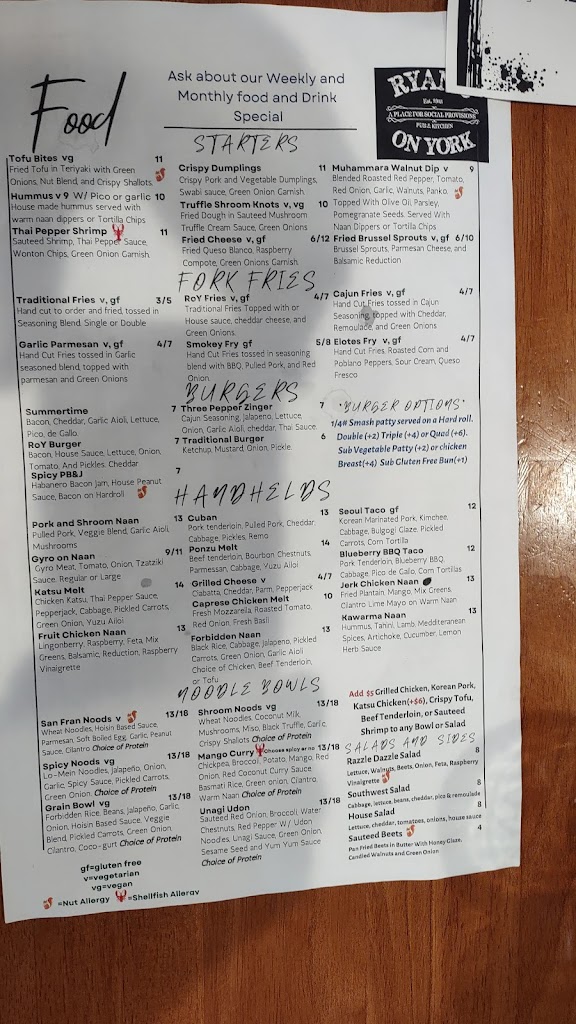 Food
Ask about our Weekly and
Monthly food and Drink
Special
RYAN
Est. 2021
A PLACE FOR SOCIAL PROVISIONS
PUB & KITCHEN
ON YORK
STARTERS
Tofu Bites vg 11
Fried Tofu in Teriyaki with Green
Onions, Nut Blend, and Crispy Shallots.
Hummus v 9 W/ Pico or garlic 10
House made hummus served with
warm naan dippers or Tortilla Chips
Thai Pepper Shrimp 11
Sauteed Shrimp, Thai Pepper Sauce,
Wonton Chips, Green Onion Garnish
Crispy Dumplings 11
Crispy Pork and Vegetable Dumplings,
Swabi sauce, Green Onion Garnish.
Truffle Shroom Knots v, vg 10
Fried Dough in Sauteed Mushroom
Truffle Cream Sauce, Green Onions
Fried Cheese v, gf 6/12
Fried Queso Blanco, Raspberry
Compote, Green Onions Garnish
Muhammara Walnut Dip v 9
Blended Roasted Red Pepper, Tomato,
Red Onion, Garlic, Walnuts, Panko.
Topped With Olive Oil, Parsley,
Pomegranate Seeds. Served With
Naan Dippers or Tortilla Chips
Fried Brussel Sprouts v, gf 6/10
Brussel Sprouts, Parmesan Cheese, and
Balsamic Reduction
FORK FRIES
Traditional Fries v, gf 3/5
Hand cut to order and fried, tossed in
Seasoning Blend. Single or Double
Garlic Parmesan v, gf 4/7
Hand Cut Fries tossed in Garlic
seasoned blend, topped with
parmesan and Green Onions
RoY Fries v, gf 4/7
Traditional Fries Topped with or
House sauce, cheddar cheese, and
Green Onions.
Smokey Fry gf 5/8
Hand Cut Fries tossed in seasoning
blend with BBQ, Pulled Pork, and Red
Onion
Cajun Fries v, gf 4/7
Hand Cut Fries tossed in Cajun
Seasoning, topped with Cheddar,
Remoulade, and Green Onions
Elotes Fry v, gf 4/7
Hand Cut Fries, Roasted Corn and
Poblano Peppers, Sour Cream, Queso
Fresco
BURGERS
Summertime 7
Bacon, Cheddar, Garlic Aioli, Lettuce,
Pico, de Gallo.
RoY Burger 7
Bacon, House Sauce, Lettuce, Onion,
Tomato, And Pickles. Cheddar
Spicy PB&J 7
Habanero Bacon jam, House Peanut
Sauce, Bacon on Hardroll
Three Pepper Zinger 7
Cajun Seasoning, Jalapeno, Lettuce,
Onion, Garlic Aioli, cheddar, Thai Sauce.
Traditional Burger 6
Ketchup, Mustard, Onion, Pickle.
*BURGER OPTIONS*
1/4# Smash patty served on a Hard roll.
Double (+2) Triple (+4) or Quad (+6).
Sub Vegetable Patty (+2) or chicken
Breast(+4) Sub Gluten Free Bun(+1)
HANDHELDS
Pork and Shroom Naan 13
Pulled Pork, Veggie Blend, Garlic Aioli,
Mushrooms
Gyro on Naan 9/11
Gyro Meat, Tomato, Onion, Tzatziki
Sauce, Regular or Large
Katsu Melt 14
Chicken Katsu, Thai Pepper Sauce,
Pepperjack, Cabbage, Pickled Carrots,
Green Onion, Yuzu Ailoi
Fruit Chicken Naan 13
Lingonberry, Raspberry, Feta, Mix
Greens, Balsamic, Reduction, Raspberry
Vinaigrette
Cuban 13
Pork tenderloin, Pulled Pork, Cheddar,
Cabbage, Pickles, Remo
Ponzu Melt 14
Beef tenderloin, Bourbon Chestnuts,
Parmessan, Cabbage, Yuzu Ailoi
Grilled Cheese v 4/7
Ciabatta, Cheddar, Parm, Pepperjack
Caprese Chicken Melt 10
Fresh Mozzarella, Roasted Tomato,
Red Onion, Fresh Basil
Forbidden Naan 13
Black Rice, Cabbage, Jalapeno, Pickled
Carrots, Green Onion, Garlic Aioli
Choice of Chicken, Beef Tenderloin,
or Tofu
Seoul Taco gf 12
Korean Marinated Pork, Kimchee,
Cabbage, Bulgogi Glaze, Pickled
Carrots, Corn Tortilla
Blueberry BBQ Taco 12
Pork Tenderloin, Blueberry BBQ,
Cabbage, Pico de Gallo, Corn Tortillas
Jerk Chicken Naan 13
Fried Plantain, Mango, Mix Greens,
Cilantro Lime Mayo on Warm Naan
Kawarma Naan 13
Hummus, Tahini, Lamb, Medditeranean
Spices, Artichoke, Cucumber, Lemon
Herb Sauce
NOODLE BOWLS
San Fran Noods v 13/18
Wheat Noodles, Hoisin Based Sauce,
Parmesan, Soft Boiled Egg, Garlic, Peanut
Sauce, Cilantro Choice of Protein
Spicy Noods vg 13/18
Lo-Mein Noodles, Jalapeño, Onion,
Garlic, Spicy Sauce, Pickled Carrots,
Green Onion Choice of Protein
Grain Bowl vg 13/18
Forbidden Rice, Beans, Jalapeño, Garlic,
Onion, Hoisin Based Sauce, Veggie
Blend, Pickled Carrots, Green Onion
Cilantro, Coco-gurt Choice of Protein
Shroom Noods vg 13/18
Wheat Noodles, Coconut Milk,
Mushrooms, Miso, Black Truffle, Garlic,
Crispy Shallots Choice of Protein
Mango Curry Choose spicy or no 13/18
Chickpea, Broccoli, Potato, Mango, Red
Onion, Red Coconut Curry Sauce,
Basmati Rice, Green onion, Cilantro,
Warm Naan Choice of Protein
Unagi Udon 13/18
Sauteed Red Onion, Broccoli, Water
Chestnuts, Red Pepper W/ Udon
Noodles, Unagi Sauce, Green Onion,
Sesame Seed and Yum Yum Sauce
Choice of Protein
Add $5 Grilled Chicken, Korean Pork,
Katsu Chicken(+$6), Crispy Tofu,
Beef Tenderloin, or Sauteed
Shrimp to any Bowl or Salad
SALADS AND SIDES
Razzle Dazzle Salad 8
Lettuce, Walnuts, Beets, Onion, Feta, Raspberry
Vinaigrette
Southwest Salad 8
Cabbage, lettuce, beans, cheddar, pico & remoulade
House Salad 8
Lettuce, cheddar, tomatoes, onions, house sauce
Sauteed Beets 4
Pan Fried Beets in Butter With Honey Glaze,
Candied Walnuts and Green Onion
gf=gluten free
v=vegetarian
vg=vegan
=Nut Allergy =Shellfish Allergy